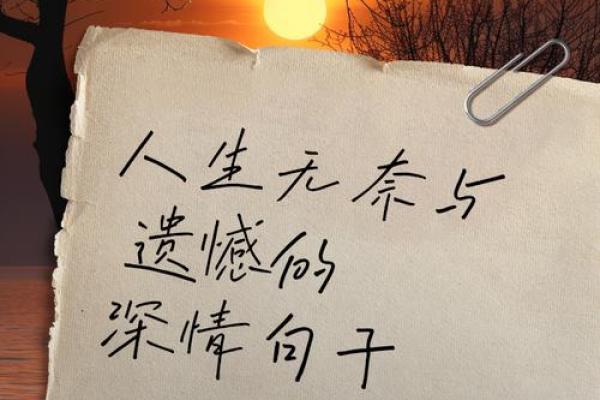 人生无奈与
遗憾的
深情句子